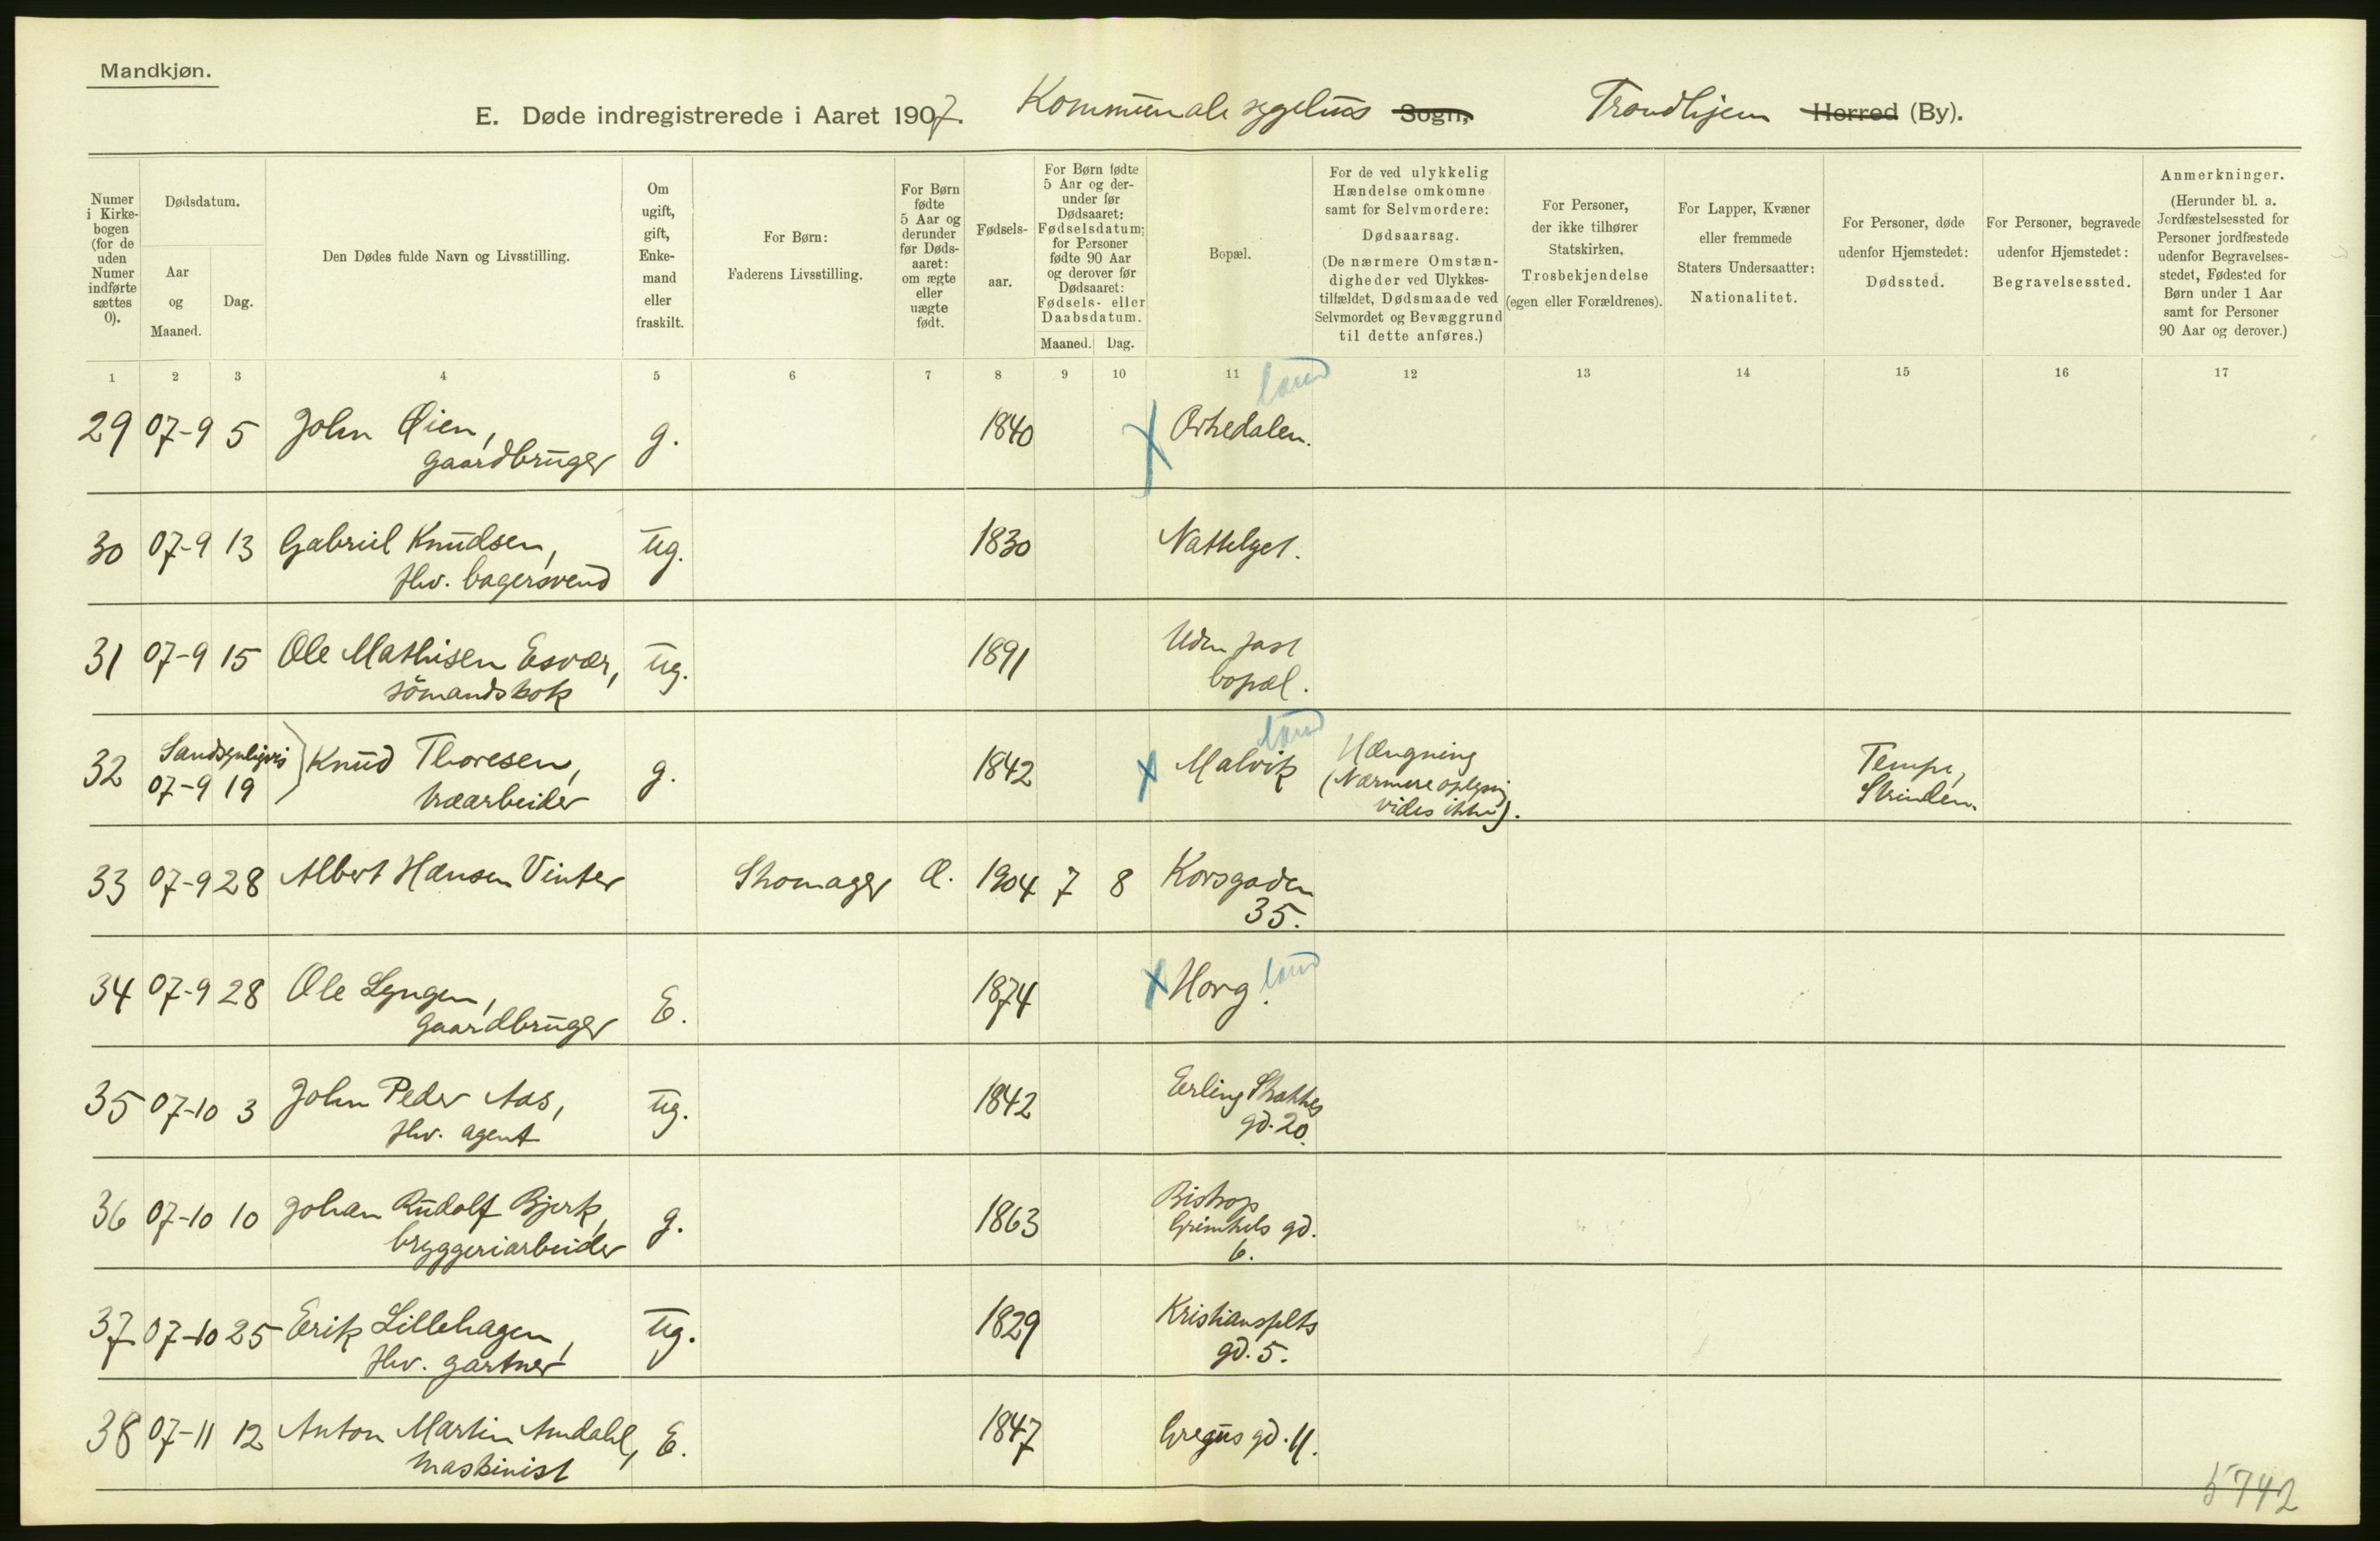 Mandkjøn.
E. Døde indregistrerede i Aaret 1907. Kommunale sygehus Sogn, Trondhjem Herred (By).
Numer i Kirkebogen (for de uden Numer indførte sættes 0).
Dødsdatum.
Aar og Maaned.
Dag.
Den Dødes fulde Navn og Livsstilling.
Om ugift, gift, Enkemand eller fraskilt.
For Børn: Faderens Livsstilling.
For Børn fødte 5 Aar og derunder før Dødsaaret: om ægte eller uægte født.
Fødselsaar.
For Børn fødte 5 Aar og derunder før Dødsaaret: Fødselsdatum; for Personer fødte 90 Aar og derover før Dødsaaret: Fødsels- eller Daabsdatum.
Maaned. Dag.
Bopæl.
For de ved ulykkelig Hændelse omkomne samt for Selvmordere: Dødsaarsag. (De nærmere Omstændigheder ved Ulykkestilfældet, Dødsmaade ved Selvmordet og Bevæggrund til dette anføres.)
For Personer, der ikke tilhører Statskirken, Trosbekjendelse (egen eller Forældrenes).
For Lapper, Kvæner eller fremmede Staters Undersaatter: Nationalitet.
For Personer, døde udenfor Hjemstedet: Dødssted.
For Personer, begravede udenfor Hjemstedet: Begravelsessted.
Anmerkninger. (Herunder bl. a. Jordfæstelsessted for Personer jordfæstede udenfor Begravelsesstedet, Fødested for Børn under 1 Aar samt for Personer 90 Aar og derover.)
1 2 3 4 5 6 7 8 9 10 11 12 13 14 15 16 17
land
29 07-9 5 John Øien, g. 1840 Orkedalen.
gaardbruger
30 07-9 13 Gabriel Knudsen, ug. 1830 Natlyst.
fhv. bagersvend
31 07-9 15 Ole Mathisen Esvær, ug. 1891 Uden fast
sömandskok bopæl.
land
32 Sandsynligvis Knud Thoresen, g. 1842 Malvik Hængning Tempe,
07-9 19 træarbeider (Nærmere oplysning Strinden.
vides ikke).
33 07-9 28 Albert Hansen Vinter Skomager Æ. 1904 7 8 Korsgaden
35.
34 07-9 28 Ole Lyngen, E. 1874 Horg. land
gaardbruger
35 07-10 3 John Peder Aas, ug. 1842 Erling Skakkes
fhv. agent gd. 20.
36 07-10 10 Johan Rudolf Bjerk, g. 1863 Biskop
bryggeriarbeider Grimkels gd.
6.
37 07-10 25 Erik Lillehagen, ug. 1829 Kristiansfelts
fhv. gartner gd. 5.
38 07-11 12 Anton Martin Amdahl, E. 1847 Gregus gd. 11.
maskinist
5742